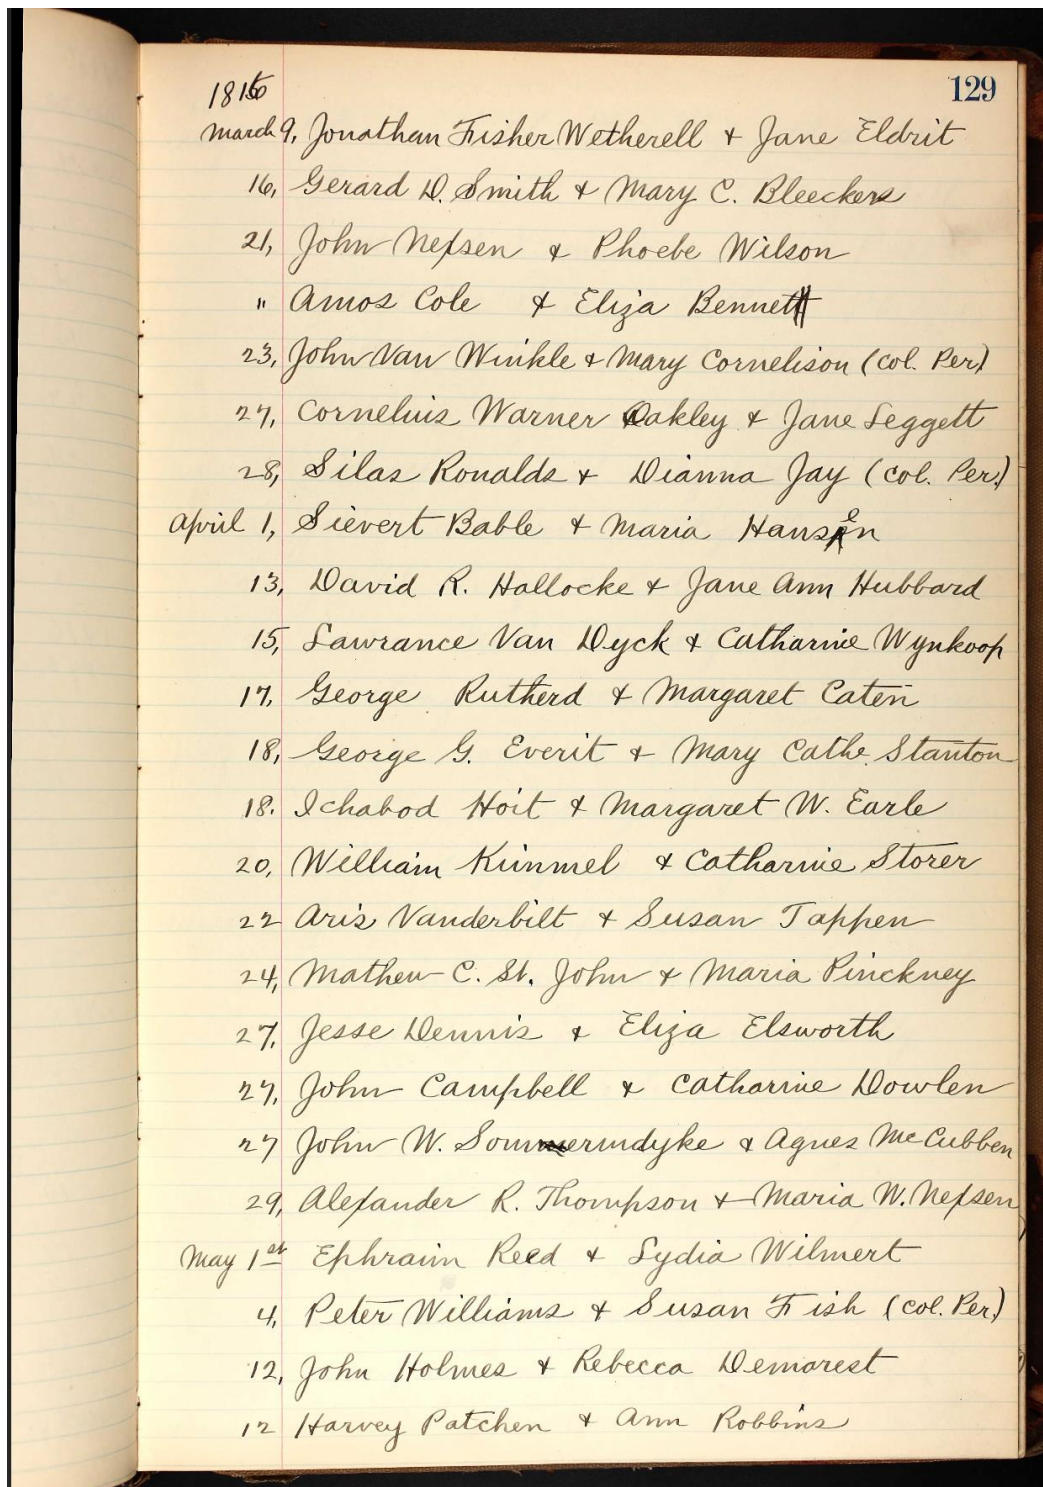 129
1816
March 9, Jonathan Fisher Wetherell & Jane Eldrit
16, Gerard D. Smith & Mary C. Bleecker
21, John Nexsen & Phoebe Wilson
" Amos Cole & Eliza Bennett
23, John Van Winkle & Mary Cornelison (Col. Per)
27, Cornelius Warner Oakley & Jane Leggett
28, Silas Ronalds & Dianna Jay (Col. Per.)
April 1, Sievert Bable & Maria Hansen
13, David R. Hallocke & Jane Ann Hubbard
15, Lawrance Van Dyck & Catharine Wynkoop
17, George Rutherd & Margaret Caten
18, George G. Everit & Mary Cathe. Stanton
18. Ichabod Hoit & Margaret W. Earle
20, William Kimmel & Catharine Storer
22 Aris Vanderbilt & Susan Tappen
24, Mathew C. St. John & Maria Pinckney
27, Jesse Dennis & Eliza Elsworth
27, John Campbell & Catharine Dowlen
27 John W. Sommerindyke & Agnes McCubben
29, Alexander R. Thompson & Maria W. Nexsen
May 1st Ephraim Reed & Lydia Wilmert
4, Peter Williams & Susan Fish (Col. Per)
12, John Holmes & Rebecca Demarest
12 Harvey Patchen & Ann Robbins